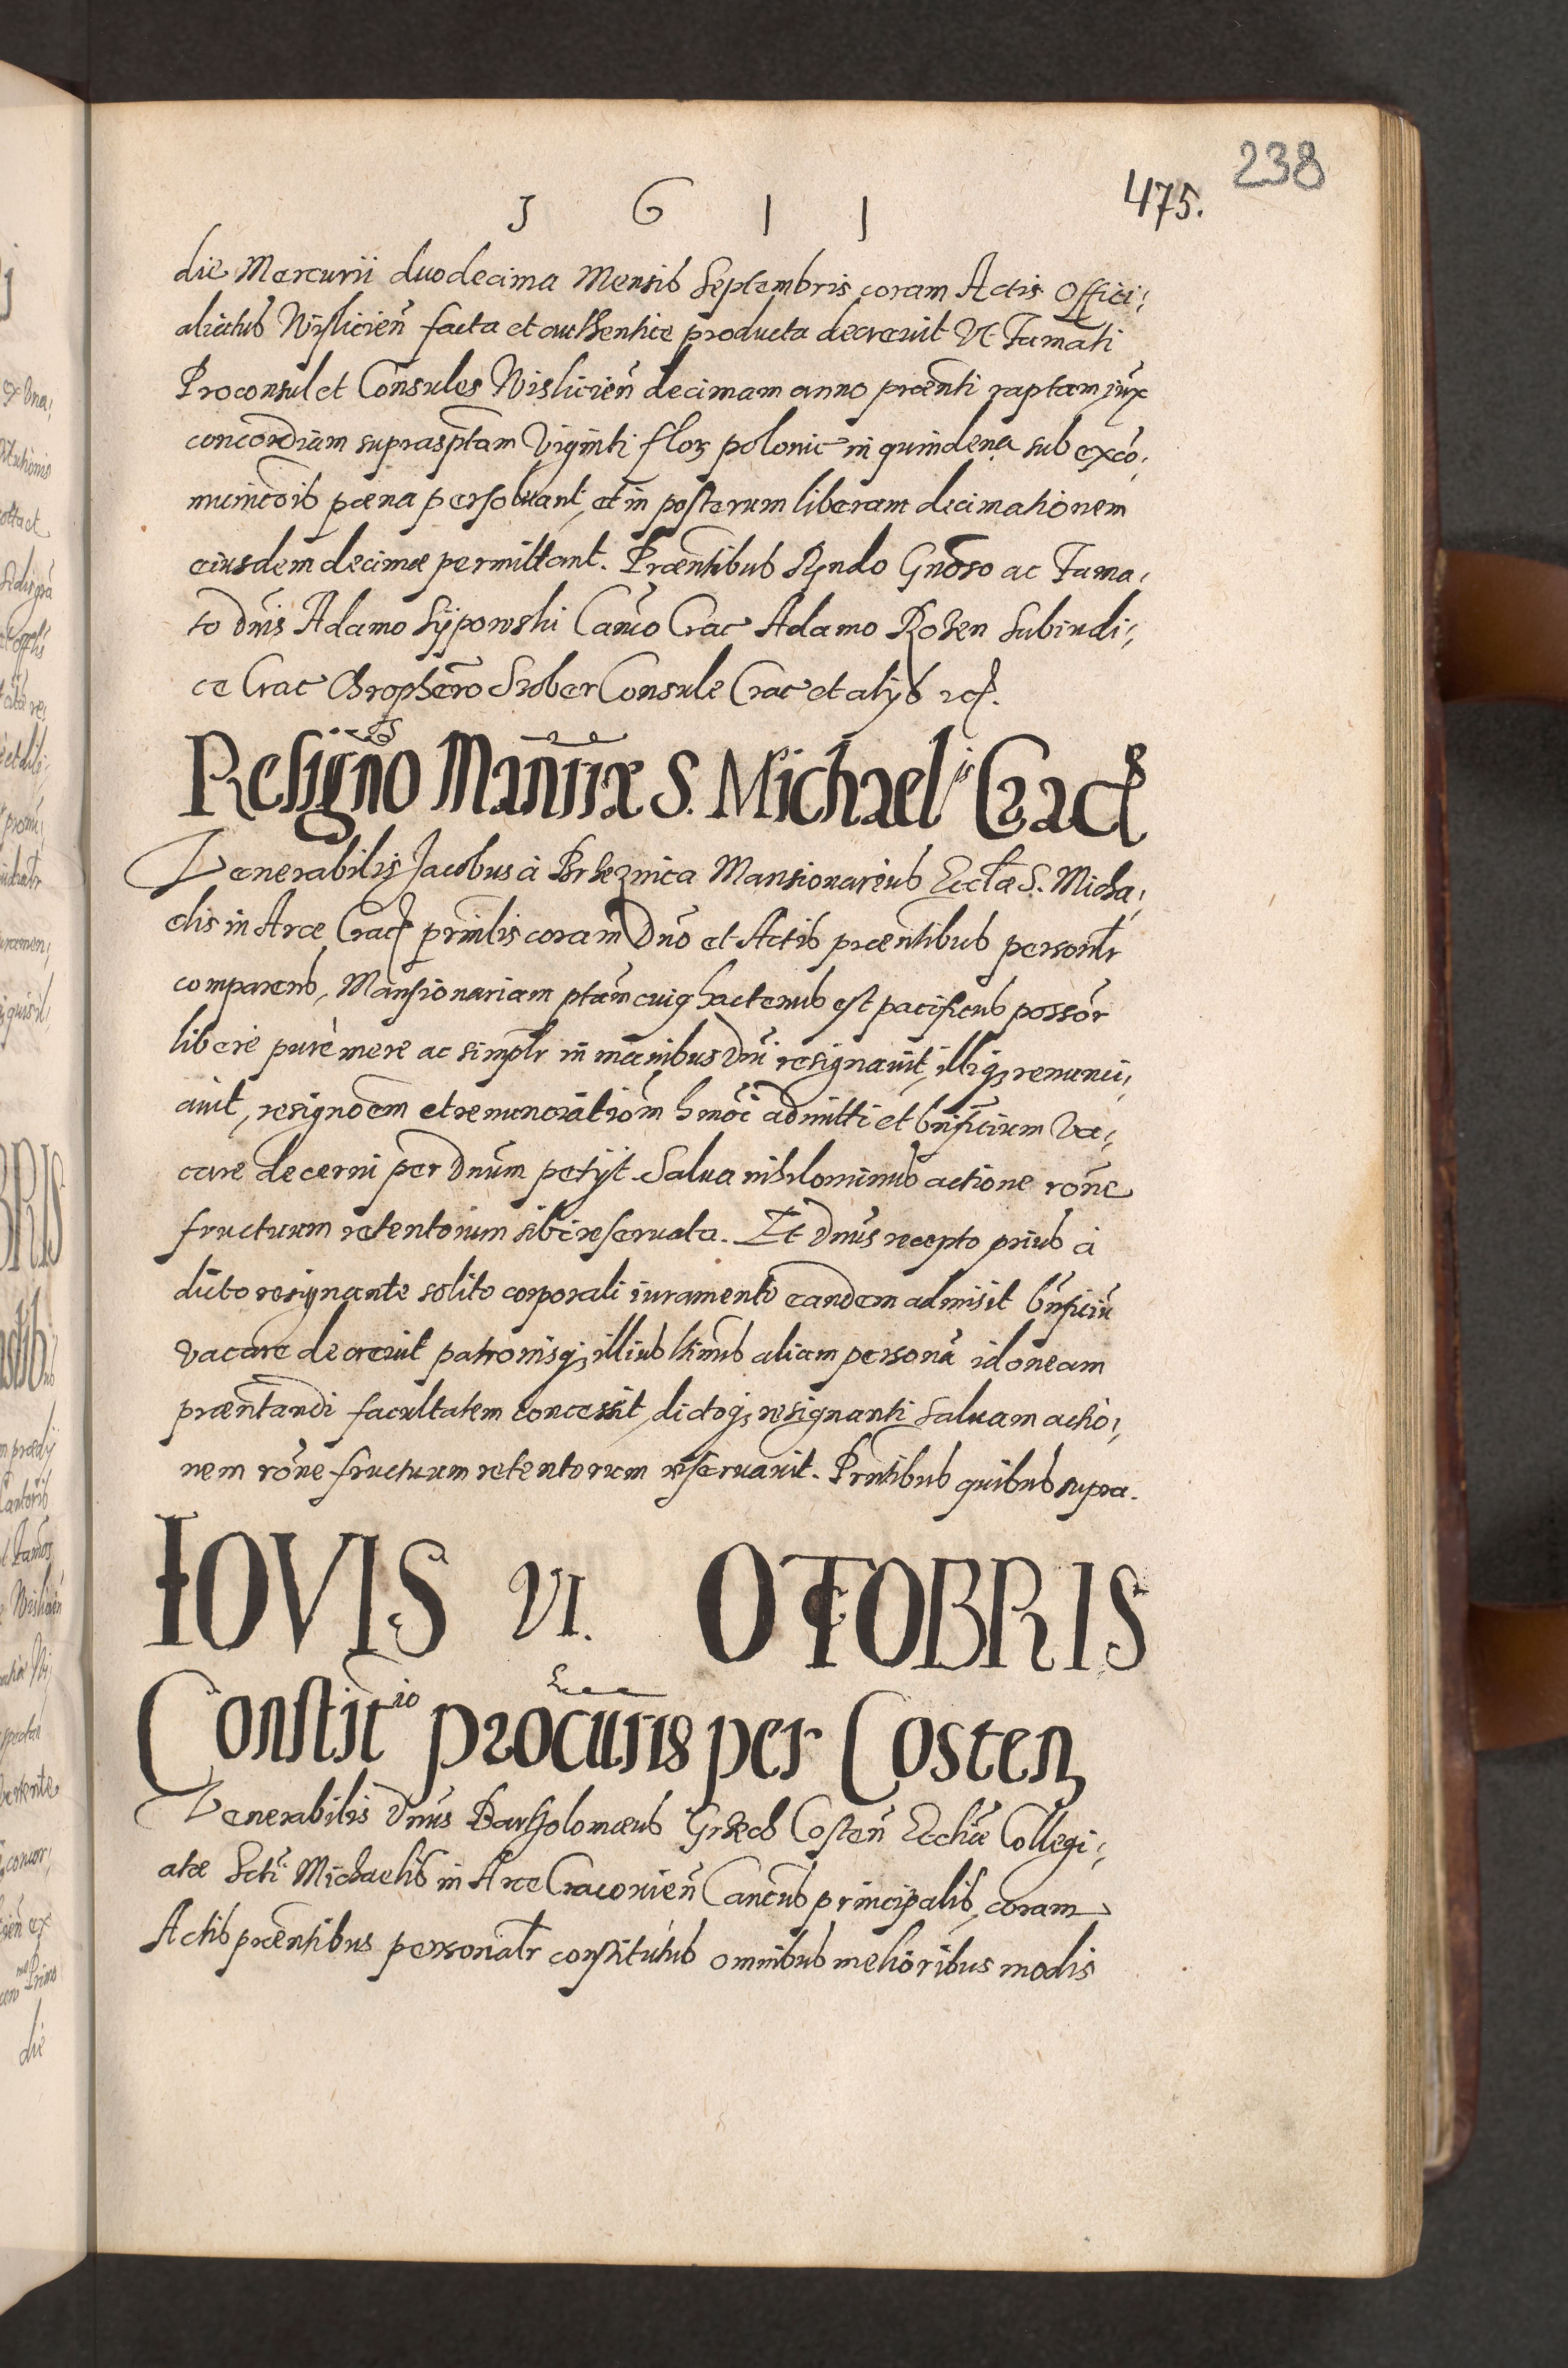 238
475.
1 6 1 1
die Mercurii duodecima Mensis Septembris coram Actis Offici¡
aliatus Wisliciēn facta et authentice producta decrevit Ut Famāti
Proconsul et Consules Wisliciēn decimam anno præn̄ti raptam jux
concordiam suprasp̄tam Viginti flor polonic in quindena sub exco¡
municōis pœna persolvant, et in posterum liberam decimationem
eiusdem decimæ permittant. Præn̄tibus Rn̄do Gn̄oso ac Fama¡
to dn̄is Adamo Sijpowski Can̄co Crac Adamo Rosen Subiudi¡
ce Crac Chrophēro Szober Consule Crac et alijs
Resign̄o Man̄riæ S. Michaelis Crac
Venerabilis Jacobus à Brzeznica Mansionarius Eccl̄æ S. Micha¡
elis in Arce Crac prin̄lis coram Dn̄o et Actis præn̄tibus person̄lr
comparens, Mansionariam p̄tam cuiq hactenus est pacificus possor̄
liberè purè mere ac simpl̄r in manibus Dn̄i resignavit, illiq; renunci¡
avit, resignōem et renunciatiōm hm̄oi admitti et bn̄ficium va¡
care decerni per Dn̄um petijt. Salva nihilominus actione rōne
fructuum retentorum sibi reservata. Et Dn̄us recepto prius à
dicto resignante solito corporali iuramento eandem admisit bn̄ficiū
vacare decrevit patronisq; illius l̄timis aliam personā idoneam
præn̄tandi facultatem concessit, dictoq; resignanti salvam actio¡
nem rōne fructuum retentorum reservavit. Prn̄tibus quibus supra.
IOVIS VI. OCTOBRIS
Constit̄io procur̄is per Costen
Venerabilis Dn̄us Bartholomæus Costēn Eccl̄iæ Collegi¡
atæ Sct̄i Michaelis in Arce Cracoviēn Can̄cus principalis, coram
Actis præn̄tibus personal̄r constitutus omnibus melioribus modis